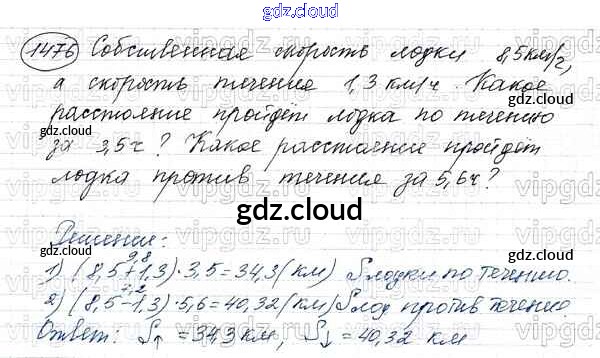 gdz.cloud
1476 Собственная скорость лодки 8,5 км/ч,
а скорость течения 1,3 км/ч. Какое
расстояние пройдёт лодка по течению
за 3,5 ч? Какое расстояние пройдёт
лодка против течения за 5,6 ч?
gdz.cloud
Решение:
9,8
1) (8,5+1,3)·3,5=34,3 (км) S лодки по течению.
7,2
2) (8,5-1,3)·5,6=40,32 (км) S лод против течения.
Ответ: S↑ = 34,3 км, S↓ = 40,32 км
gdz.cloud